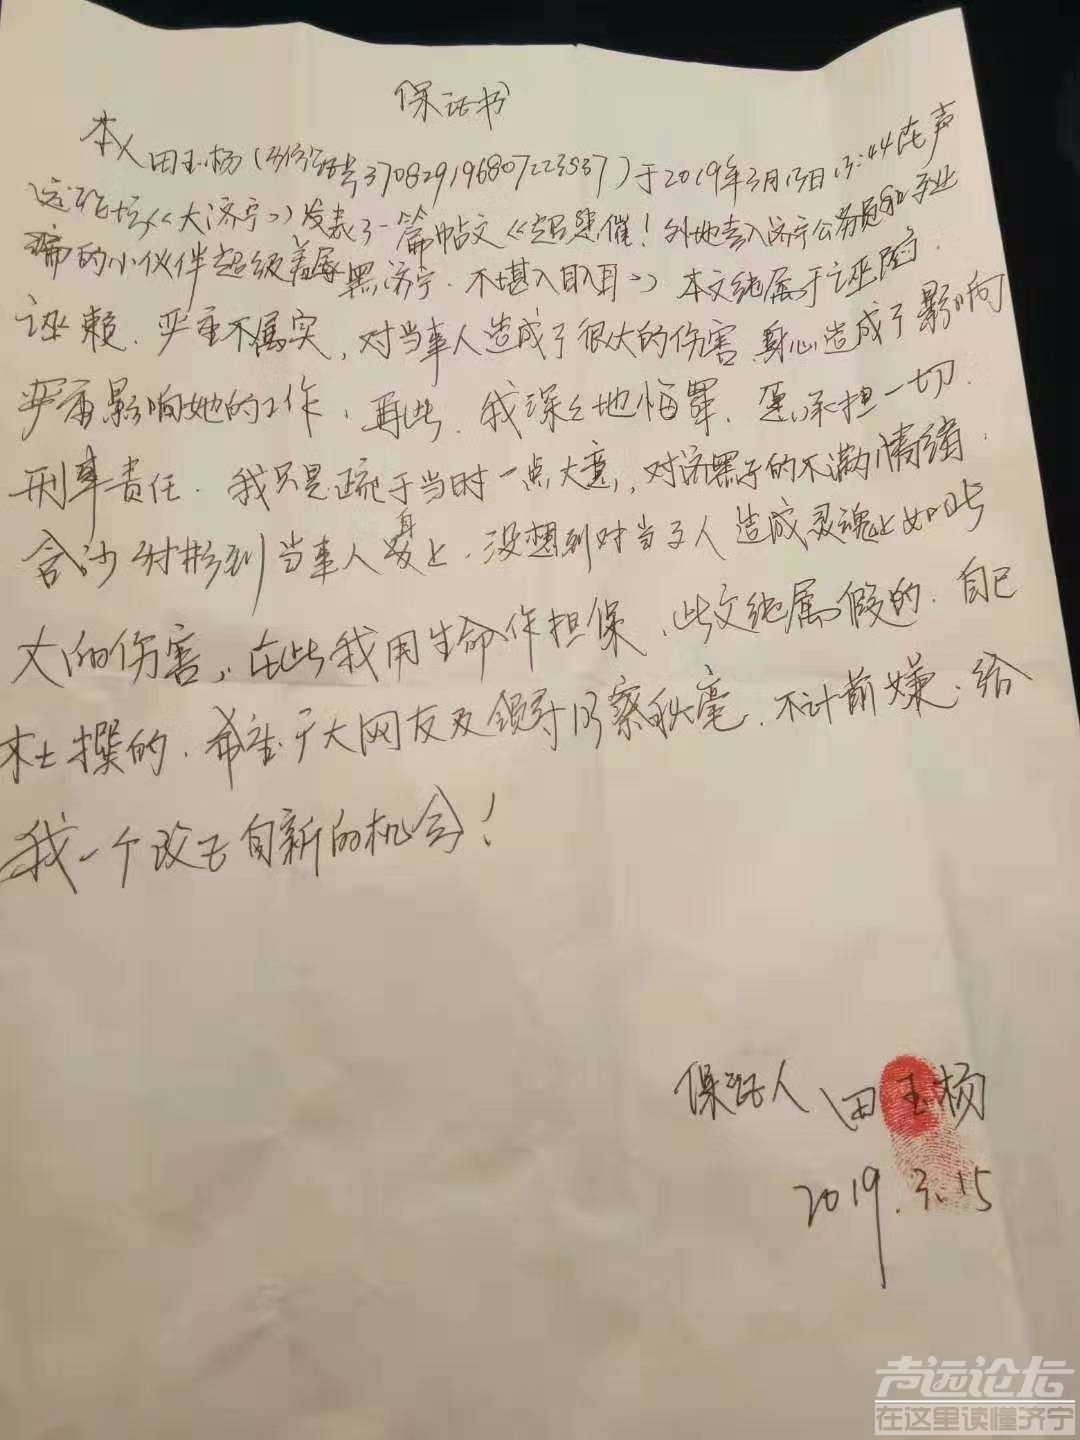 保证书
本人田玉杨(身份证号370829196807223537)于2019年3月13日13:44在声
远论坛《大济宁》发表了一篇帖文《超悲催!外地考入济宁公务员和事业
编的小伙伴超级羞辱黑济宁.不堪入目入耳》本文纯属于诬陷.
诬赖.严重不属实,对当事人造成了很大的伤害身心造成了影响
严重影响她的工作,再此.我深深地悔罪.愿承担一切.
刑事责任.我只是疏于当时一点大意,对济黑子的不满情绪.
含沙射影到当事人身上.没想到对当事人造成灵魂上如此
大的伤害,在此我用生命作担保,此文纯属假的.自己
杜撰的.希望广大网友及领导明察秋毫.不计前嫌.给
我一个改过自新的机会!
保证人 田玉杨
2019.3.15
声远论坛
在这里读懂济宁